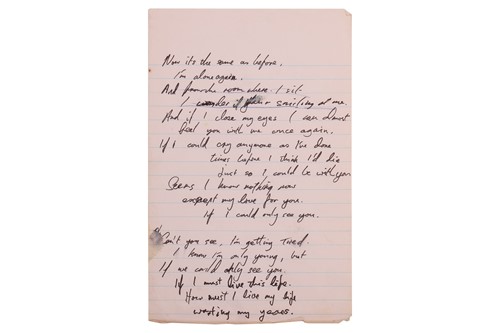 Now it's the same as before.
I'm alone again.
And from the room where I sit
I wonder if you're smiling at me.
And if I close my eyes I can almost
feel you with me once again.
If I could cry anymore as I've done
times before I think I'd die
just so I could be with you
Seems I know nothing now
except my love for you.
If I could only see you.
Can't you see, I'm getting tired.
I know I'm only young, but
If we could only see you.
If I must live this life.
How must I live my life
wasting my years.